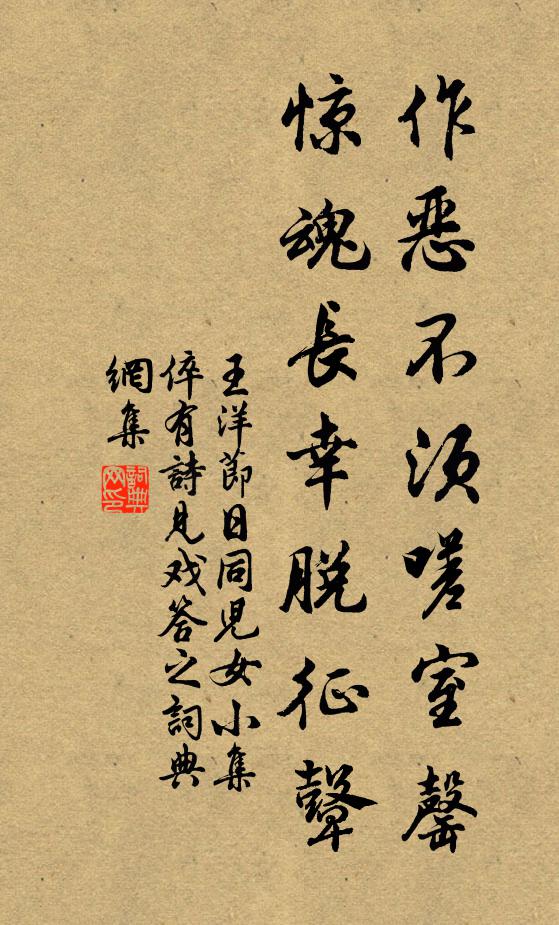 作恶不须嗟室罄
惊魂長幸脱征鼙
王洋節日同児女小集
倅有詩見戏答之詞典
網集
詞典網印